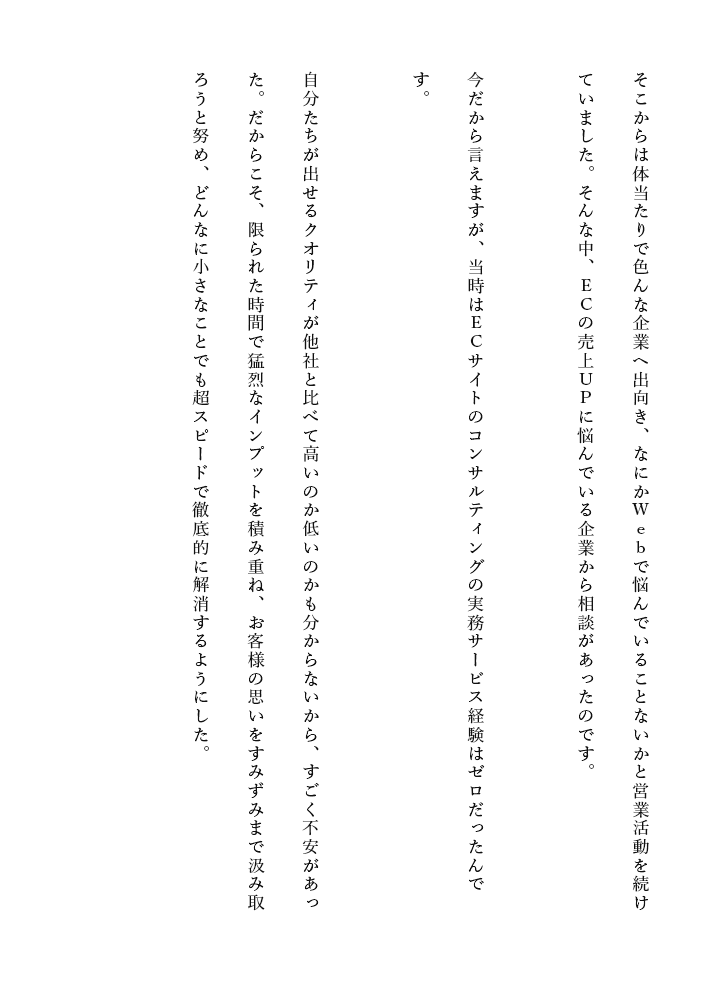 そこからは体当たりで色んな企業へ出向き、なにかＷｅｂで悩んでいることないかと営業活動を続け
ていました。そんな中、ＥＣの売上ＵＰに悩んでいる企業から相談があったのです。
今だから言えますが、当時はＥＣサイトのコンサルティングの実務サービス経験はゼロだったんで
す。
自分たちが出せるクオリティが他社と比べて高いのか低いのかも分からないから、すごく不安があっ
た。だからこそ、限られた時間で猛烈なインプットを積み重ね、お客様の思いをすみずみまで汲み取
ろうと努め、どんなに小さなことでも超スピードで徹底的に解消するようにした。